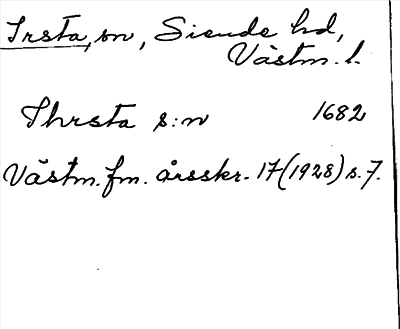 Irsta, sn, Siende hd,
Västm. l.
Ihrsta s:n 1682
Västm. fm. årsskr. 17 (1928) s. 7.